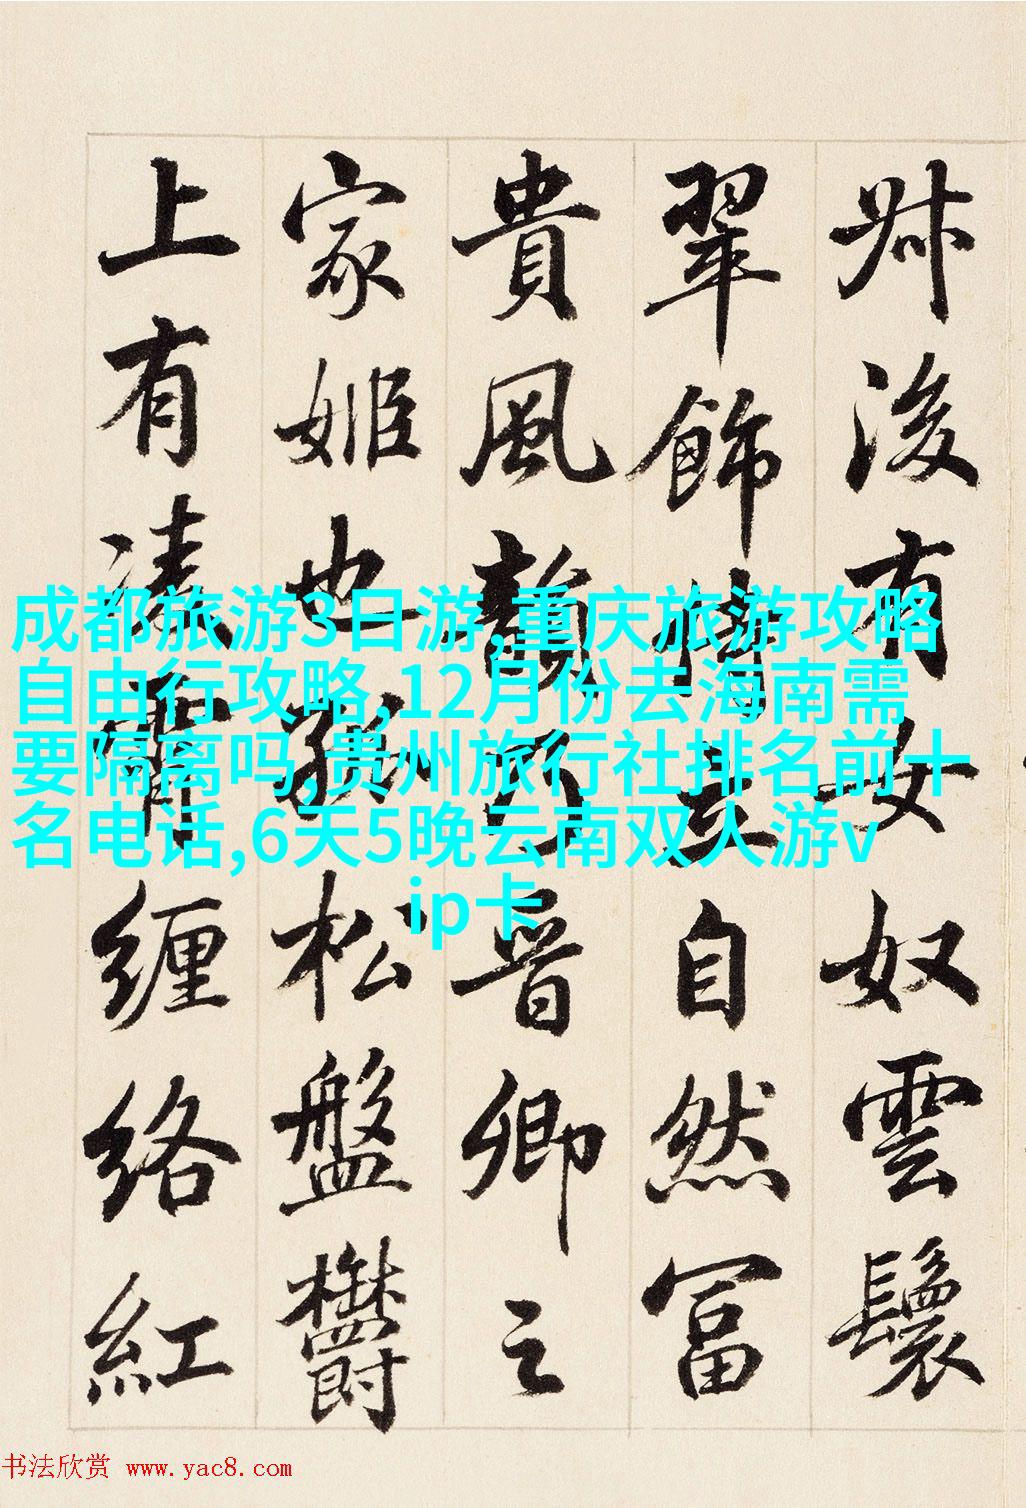 叔後有女奴雲鬟
翠飾侍立自然富
貴風韻乃晉卿之
家姬也孤松盤鬱
上有凌霄纏絡紅
成都旅游3日游,重庆旅游攻略
自由行攻略,12月份去海南需
要隔离吗,贵州旅行社排名前十
名电话,6天5晚云南双人游v
ip卡
书法欣赏 www.yac8.com